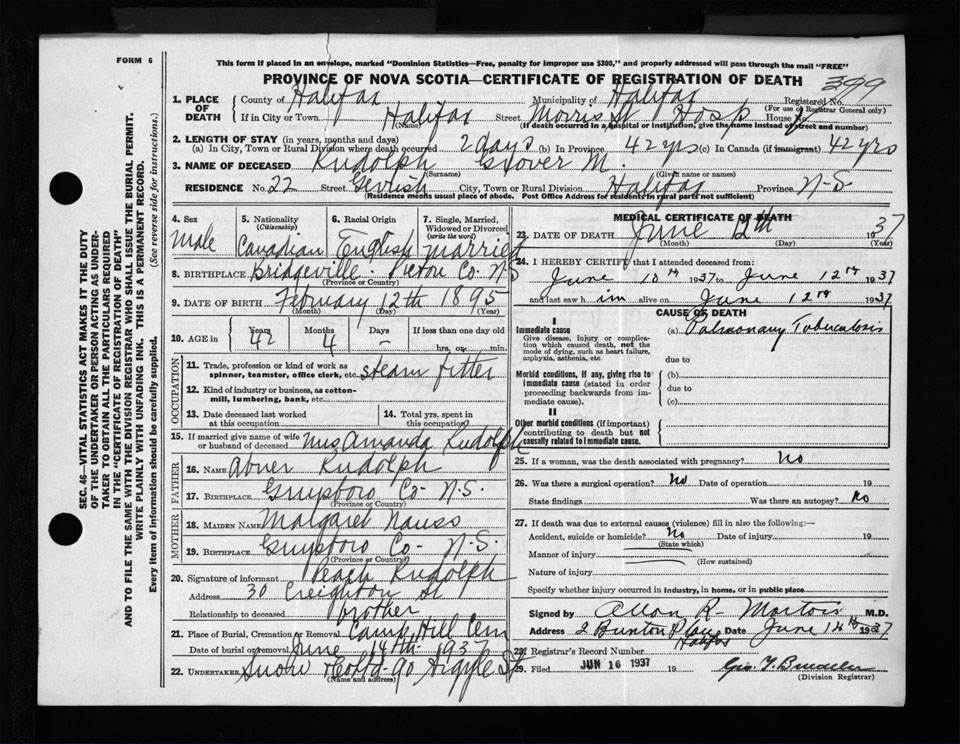 FORM 6
This form if placed in an envelope, marked "Dominion Statistics—Free, penalty for improper use $300," and properly addressed will pass through the mail "FREE"
PROVINCE OF NOVA SCOTIA—CERTIFICATE OF REGISTRATION OF DEATH
399
1. PLACE OF DEATH
County of Halifax Municipality of Halifax Registered No.
(For use of Registrar General only)
If in City or Town Halifax Street Morris St Hosp House No.
(Name) (If death occurred in a hospital or institution, give the name instead of street and number)
2. LENGTH OF STAY (in years, months and days)
(a) In City, Town or Rural Division where death occurred 2 days (b) In Province 42 yrs (c) In Canada (if immigrant) 42 yrs
3. NAME OF DECEASED Rudolph Grover M.
(Surname) (Given name or names)
RESIDENCE No. 22 Street City, Town or Rural Division Halifax Province N-S-
(Residence means usual place of abode. Post Office Address for residents in rural parts not sufficient)
4. Sex Male
5. Nationality (Citizenship) Canadian
6. Racial Origin English
7. Single, Married, Widowed or Divorced (write the word) married
8. BIRTHPLACE Bridgeville - Pictou Co- N-S
(Province or Country)
9. DATE OF BIRTH February 12th 1895
(Month) (Day) (Year)
10. AGE in Years 42 Months 4 Days - If less than one day old hrs. or min.
OCCUPATION
11. Trade, profession or kind of work as spinner, teamster, office clerk, etc. steam fitter
12. Kind of industry or business, as cotton-mill, lumbering, bank, etc.
13. Date deceased last worked at this occupation
14. Total yrs. spent in this occupation
15. If married give name of wife or husband of deceased Mrs Amanda Rudolph
FATHER
16. NAME Abner Rudolph
17. BIRTHPLACE Guysboro Co- N-S.
(Province or Country)
MOTHER
18. MAIDEN NAME Margaret Nauss
19. BIRTHPLACE Guysboro Co- N-S.
(Province or Country)
20. Signature of informant Rudolph
Address 30 Creighton St
Relationship to deceased brother
21. Place of Burial, Cremation or Removal Camp Hill Cem
Date of burial or removal June 14th - 1937
22. UNDERTAKER Snow & Co Ltd - 90 Argyle St
(Name and address)
MEDICAL CERTIFICATE OF DEATH
23. DATE OF DEATH June 12th 1937
(Month) (Day) (Year)
24. I HEREBY CERTIFY that I attended deceased from:
June 10th 1937 to June 12th 1937
and last saw him alive on June 12th 1937
CAUSE OF DEATH
I
Immediate cause (a) Pulmonary Tuberculosis
Give disease, injury or complication which caused death, not the mode of dying, such as heart failure, asphyxia, asthenia, etc.
due to
Morbid conditions, if any, giving rise to immediate cause (stated in order proceeding backwards from immediate cause).
(b)
due to
(c)
II
Other morbid conditions (if important) contributing to death but not causally related to immediate cause.
25. If a woman, was the death associated with pregnancy? No
26. Was there a surgical operation? No Date of operation 19
State findings Was there an autopsy? No
27. If death was due to external causes (violence) fill in also the following:—
Accident, suicide or homicide? No Date of injury 19
(State which)
Manner of injury
(How sustained)
Nature of injury
Specify whether injury occurred in industry, in home, or in public place
Signed by Allan R- M.D.
Address 2 Date June 14th 1937
Halifax
28. Registrar's Record Number
29. Filed JUN 16 1937 19
(Division Registrar)
SEC. 46—VITAL STATISTICS ACT MAKES IT THE DUTY
OF THE UNDERTAKER OR PERSON ACTING AS UNDER-
TAKER TO OBTAIN ALL THE PARTICULARS REQUIRED
IN THE "CERTIFICATE OF REGISTRATION OF DEATH"
AND TO FILE THE SAME WITH THE DIVISION REGISTRAR WHO SHALL ISSUE THE BURIAL PERMIT.
WRITE PLAINLY WITH UNFADING INK. THIS IS A PERMANENT RECORD.
Every item of information should be carefully supplied. (See reverse side for instructions.)